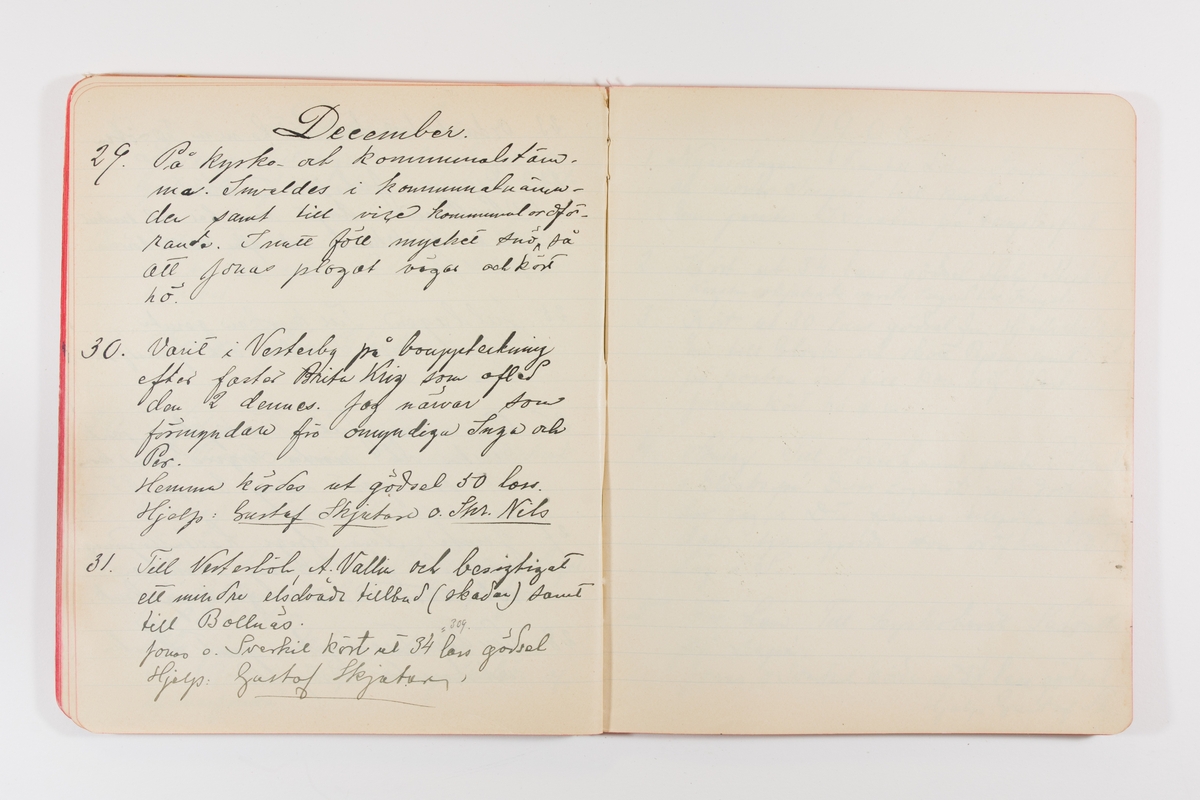 December.
29. På kyrko- och kommunalstäm-
ma. Invaldes i kommunalnämn-
den samt till vice kommunalordfö-
rande. I natt föll mycket snö, så
att Jonas plogat vägar och kört
hö.
30. Varit i Vesterby på bouppteckning
efter faster Brita Krig som afled
den 2 dennes. Jag närvar som
förmyndare för omyndiga Inga och
Per.
Hemma kördes ut gödsel 50 lass.
Hjelp: Gustaf Skjutare o. Skr. Nils
31. Till Vesterböle, A. Vallin och besigtigat
ett mindre elsdvåde tillbud (skadan) samt
till Bollnäs.
= 209.
Jonas o. Sverkil kört ut 34 lass gödsel
Hjelp: Gustaf Skjutare,